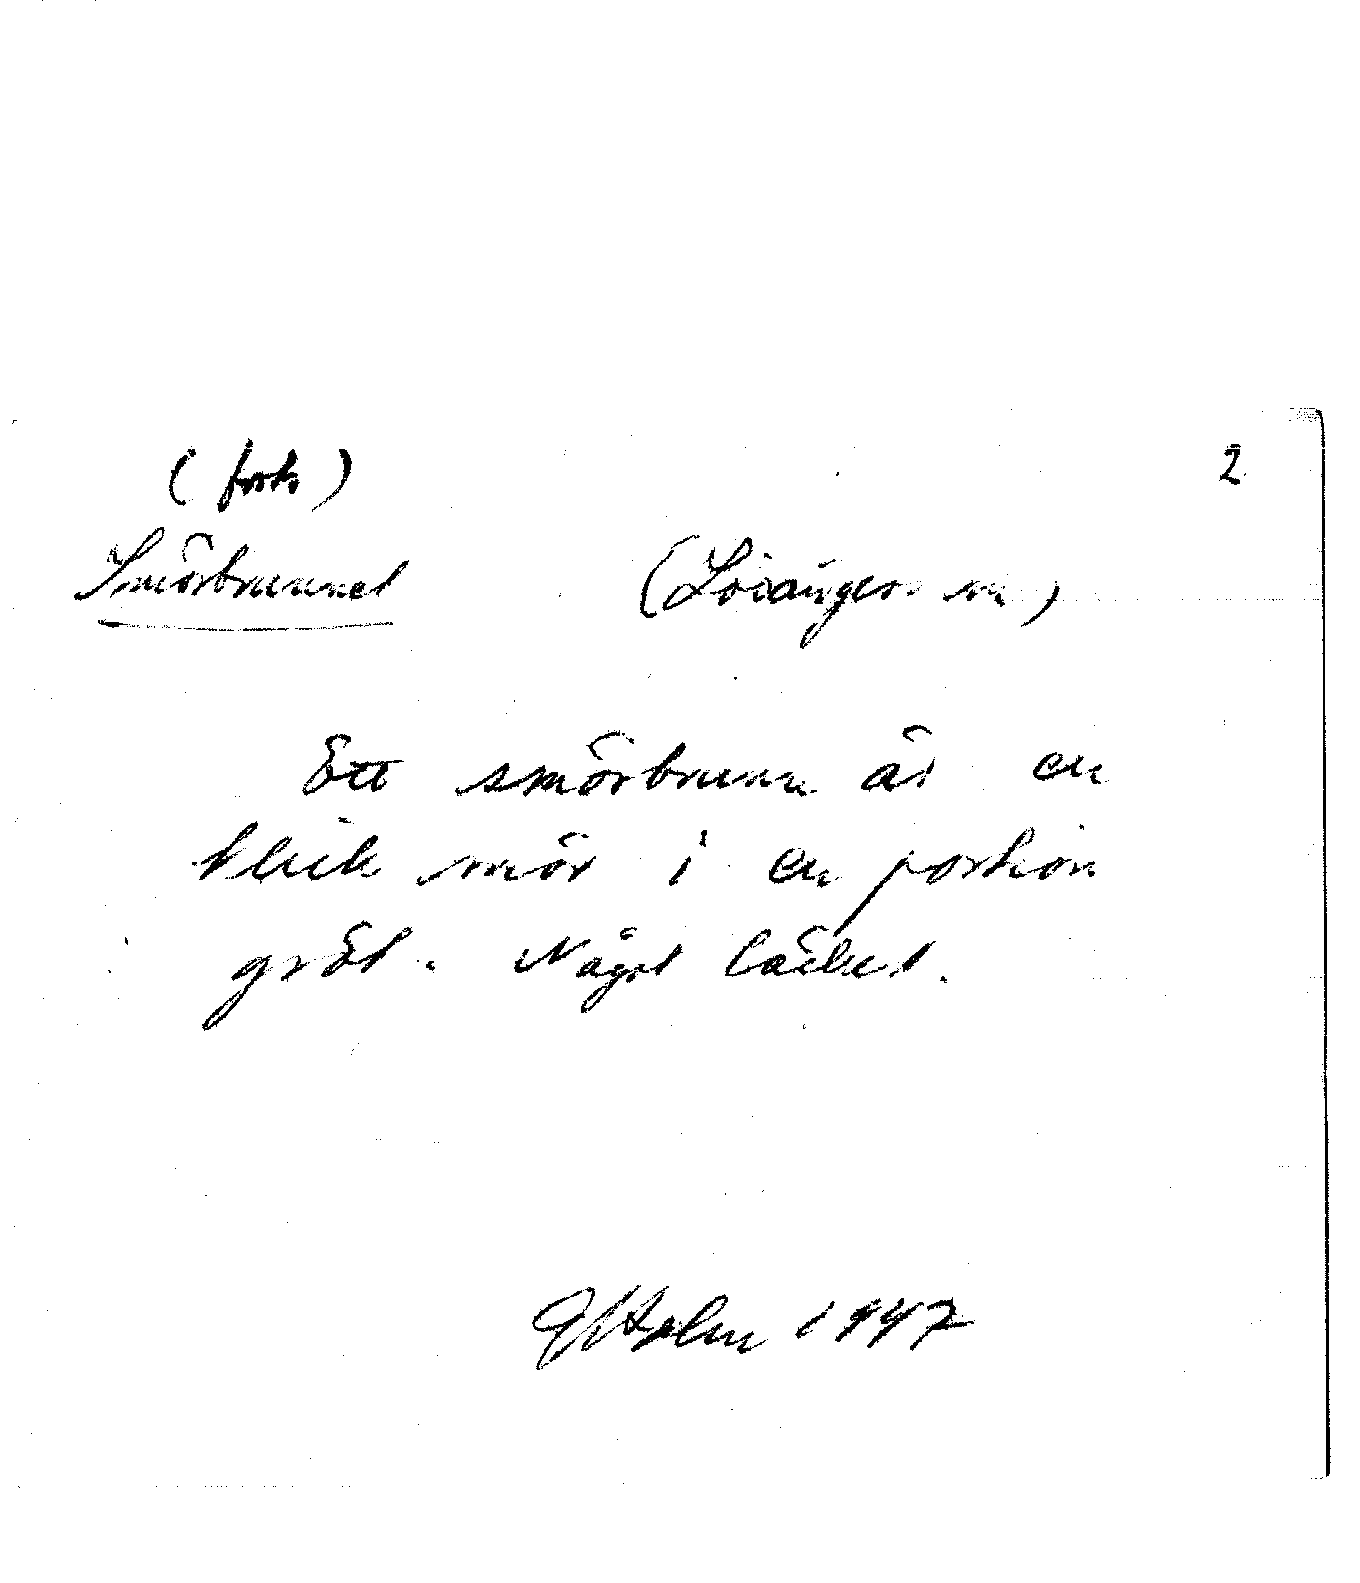 (forts)
2
Smörbrunnet
(Lövånger sn)
Ett smörbrunn är en
klick smör i en portion
gröt. Något läckert.
G Holm 1947